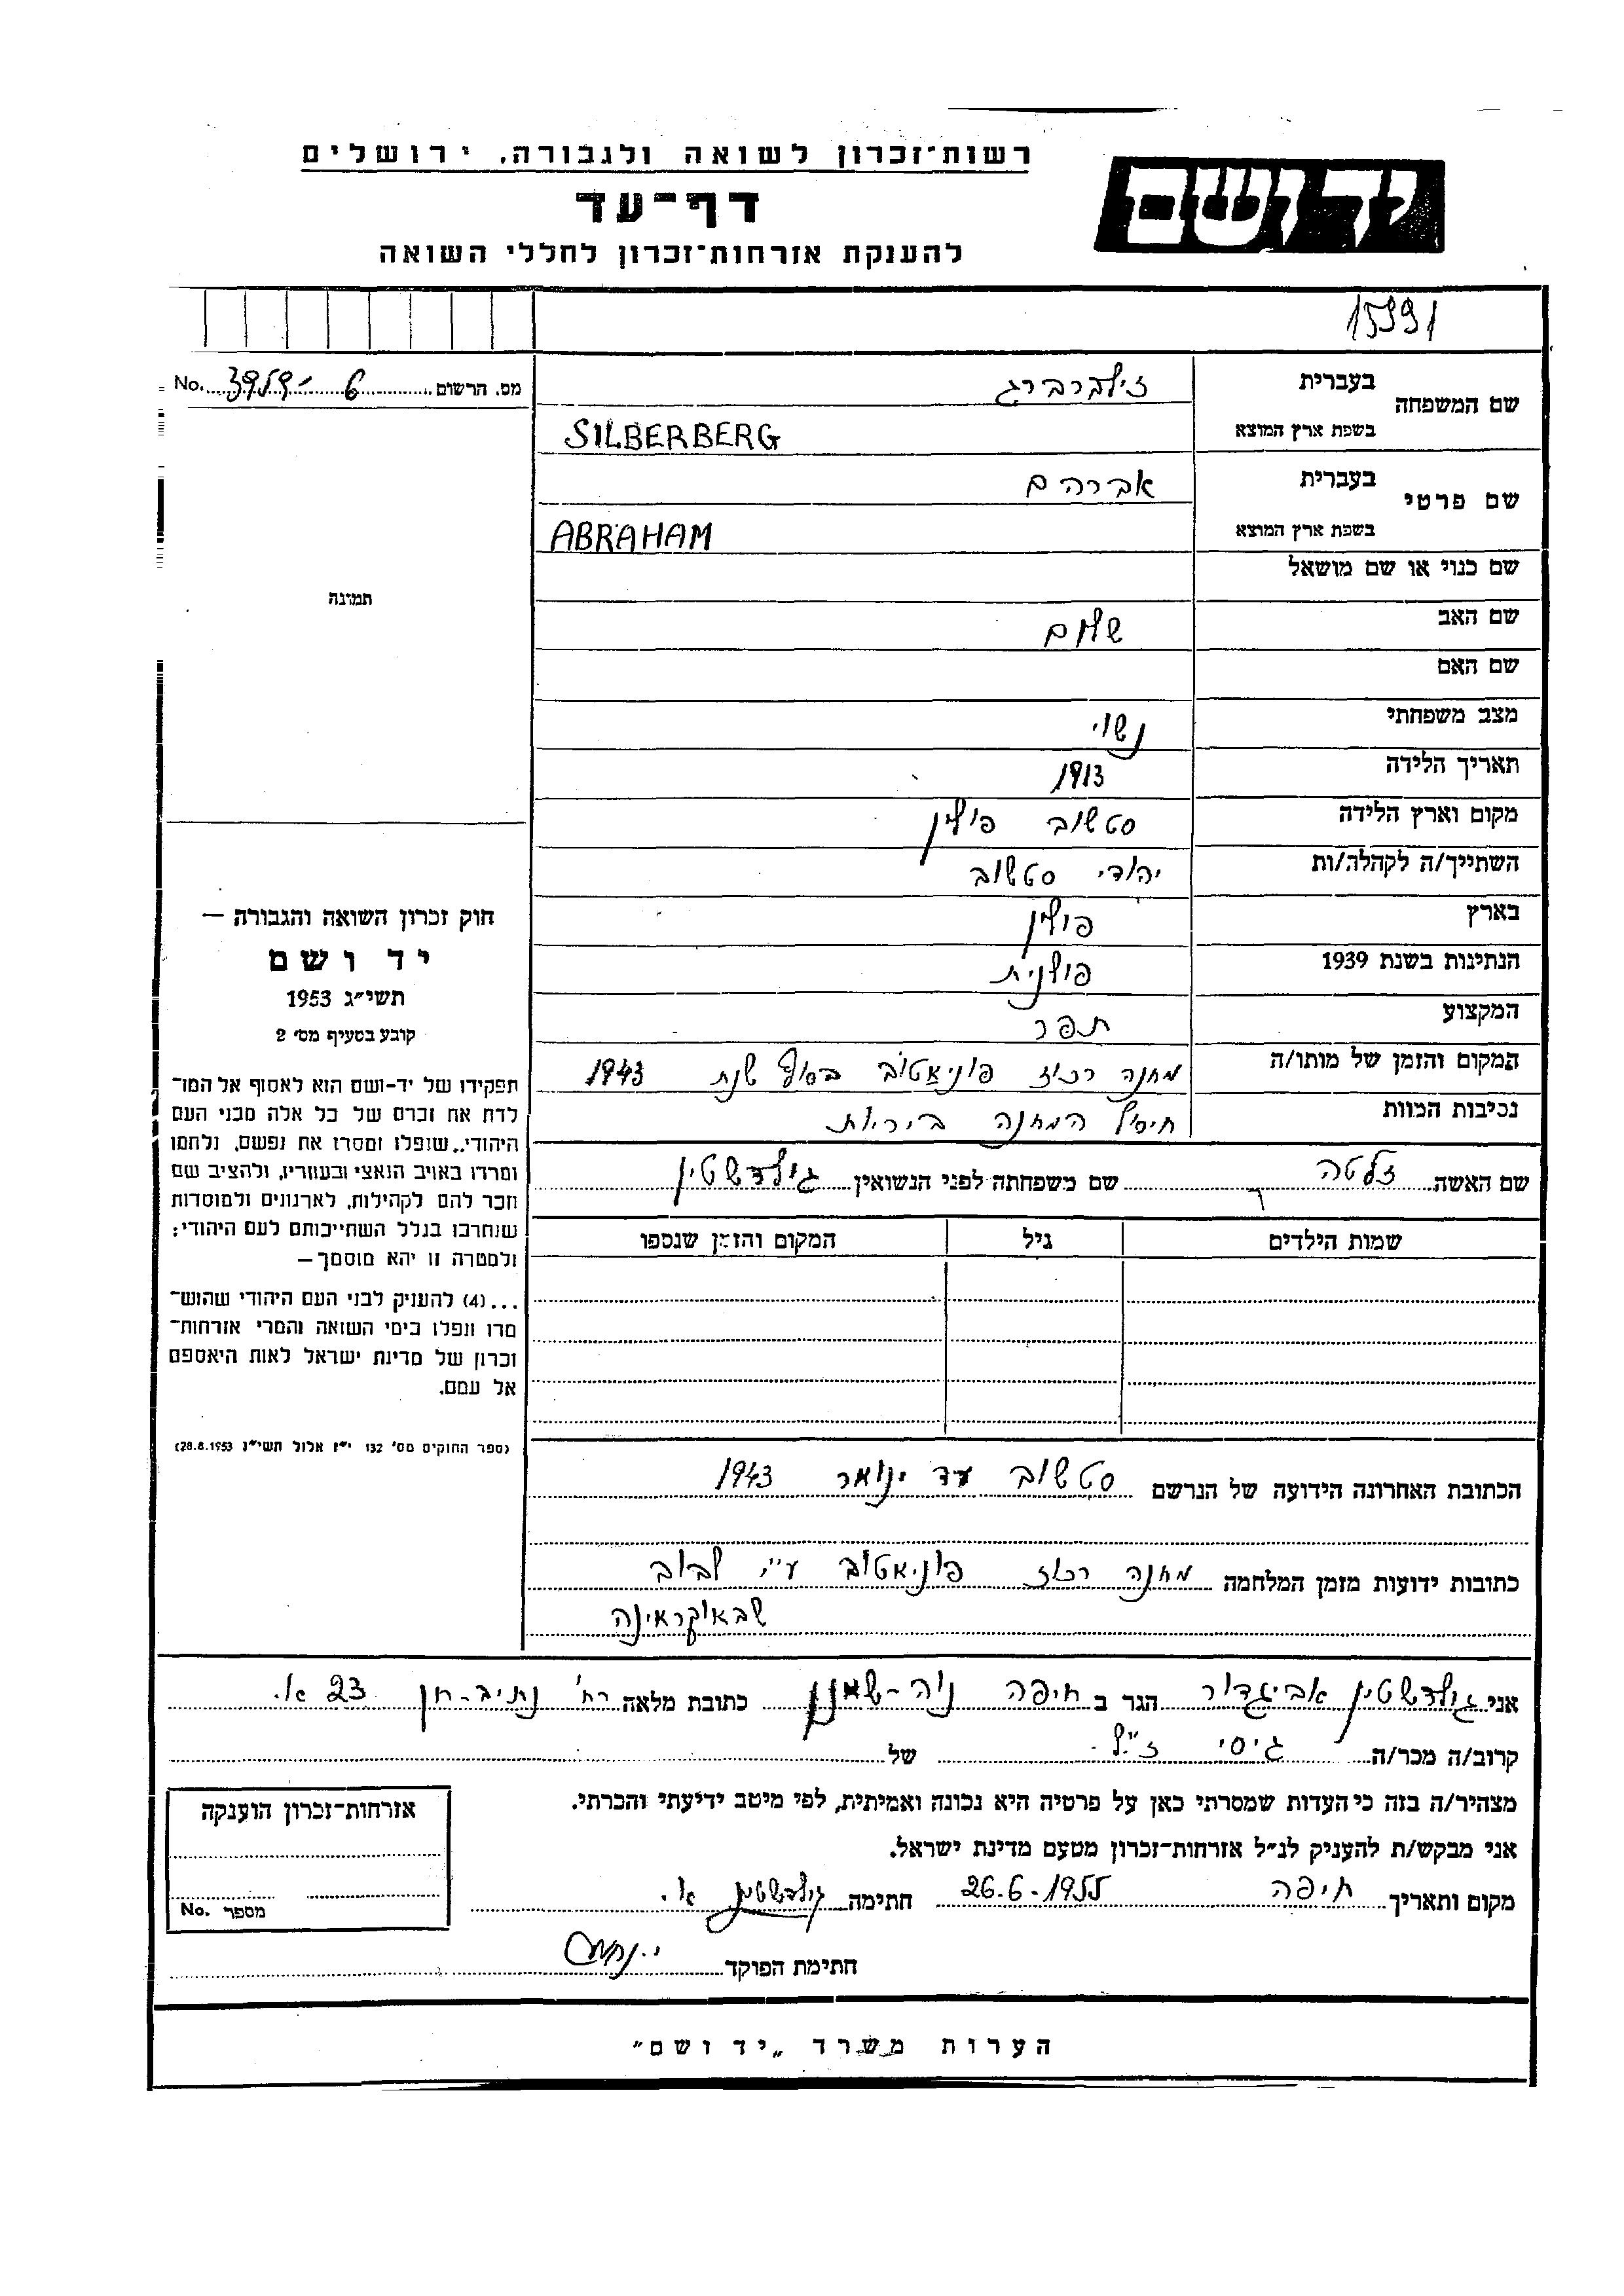 רשות־זכרון לשואה ולגבורה, ירושלים
יד ושם
דף־עד
להענקת אזרחות־זכרון לחללי השואה
15991
שם המשפחה
בעברית
זילברברג
בשפת ארץ המוצא
SILBERBERG
שם פרטי
בעברית
אברהם
בשפת ארץ המוצא
ABRAHAM
שם כנוי או שם מושאל
שם האב שלום
שם האם
מצב משפחתי נשוי
תאריך הלידה 1913
מקום וארץ הלידה סטשוב פולין
השתייך/ה לקהלה/ות יהודי סטשוב
בארץ פולין
הנתינות בשנת 1939 פולנית
המקצוע תפר
המקום והזמן של מותו/ה מחנה רכוז פוניאטוב בסוף שנת 1943
נסיבות המוות חיסול המחנה ביריות
שם האשה זלטה שם משפחתה לפני הנשואין גולדשטין
שמות הילדים גיל המקום והזמן שנספו
מס. הרשום No.
תמונה
חוק זכרון השואה והגבורה —
יד ושם
תשי״ג 1953
קובע בסעיף מס׳ 2
תפקידו של יד-ושם הוא לאסוף אל המו־
לדת את זכרם של כל אלה מבני העם
היהודי, שנפלו ומסרו את נפשם, נלחמו
ומרדו באויב הנאצי ובעוזריו, ולהציב שם
וזכר להם לקהילות, לארגונים ולמוסדות
שנחרבו בגלל השתייכותם לעם היהודי;
ולמטרה זו יהא מוסמך—
...(4) להעניק לבני העם היהודי שהוש־
מדו ונפלו בימי השואה והמרי אזרחות־
זכרון של מדינת ישראל לאות היאספם
אל עמם.
(ספר החוקים מס׳ 132 י״ז אלול תשי״ג 28.8.1953)
הכתובת האחרונה הידועה של הנרשם סטשוב עד ינואר 1943
כתובות ידועות מזמן המלחמה מחנה רכוז פוניאטוב ע״י לבוב
שבאוקראינה
אני גולדשטין אביגדור הגר ב חיפה נוה-שאנן כתובת מלאה רח׳ נתיב-חן 23 א.
קרוב/ה מכר/ה גיסי ז״ל. של
מצהיר/ה בזה כי העדות שמסרתי כאן על פרטיה היא נכונה ואמיתית, לפי מיטב ידיעתי והכרתי.
אני מבקש/ת להעניק לנ״ל אזרחות־זכרון מטעם מדינת ישראל.
מקום ותאריך חיפה 26.6.1955 חתימה גולדשטין א.
חתימת הפוקד
אזרחות־זכרון הוענקה
מספר No.
הערות משרד „יד ושם״